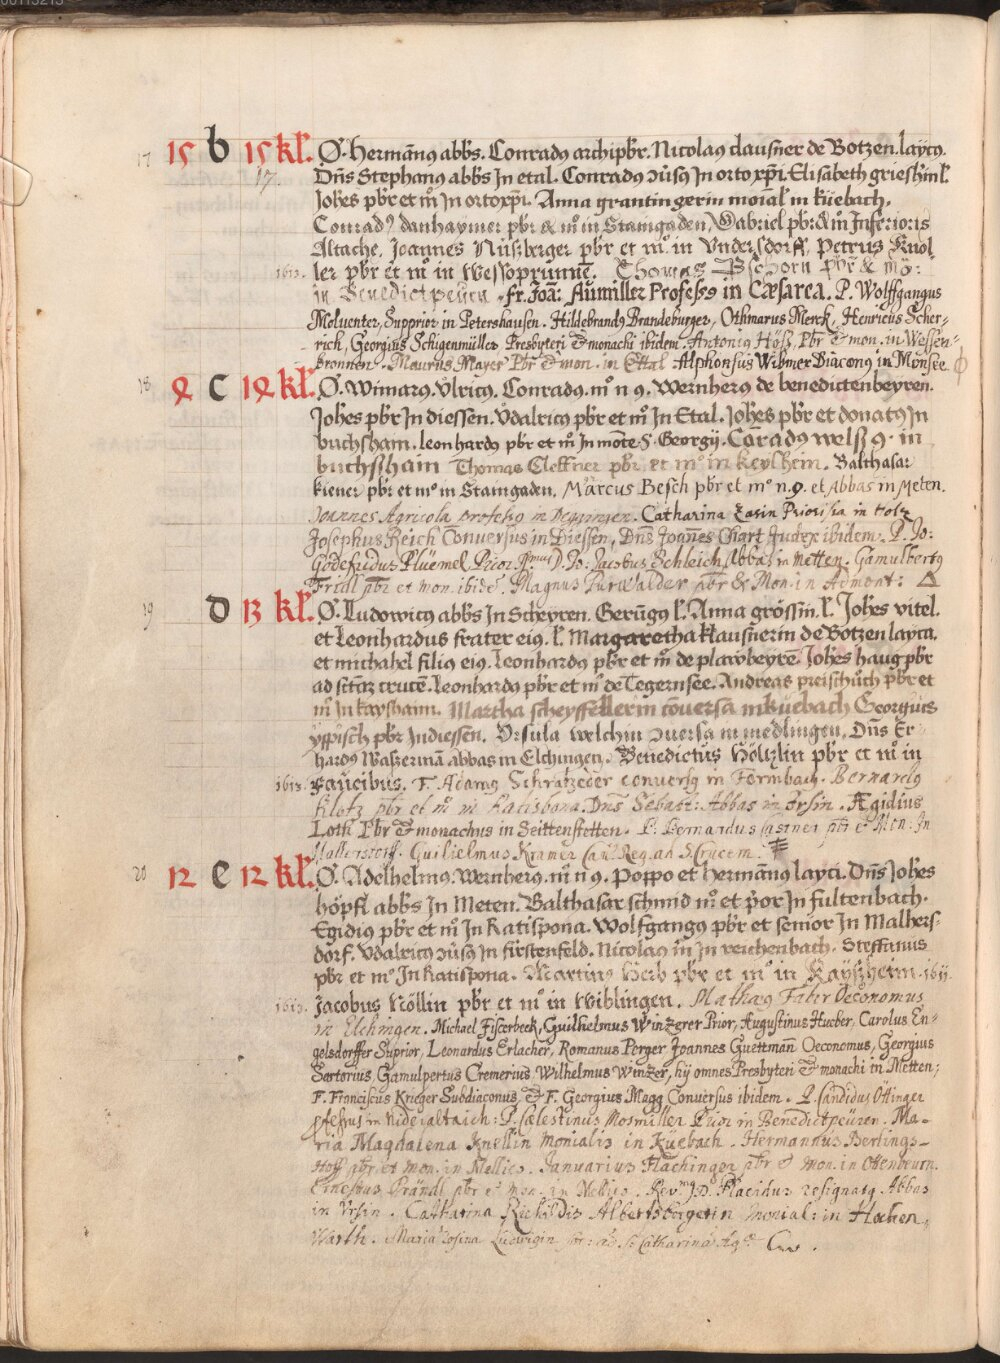 17 15 b 15 kl. O. Hermañꝰ abbs. Conradꝰ archipbr. Nicolaꝰ clausner de Botzen laycꝰ.
17. Dñs Stephanꝰ abbs In etal. Conradꝰ ↄusꝰ In orto xp̄i Elisabeth
Johes pbr et mo In ortoxp̄i. Anna grantingerin moial in küebach.
Conradꝰ danhaymer pbr & mo in Staingaden, Gabriel pbr & mo Inferioris
Altache, Joannes Nüszberger pbr et mo in Vndersdorff, Petrus Knol
1613. ler pbr et mo in Wessoprunne. Thomas Bschorn pbr & mo:
in Benedictpeurn. fr. Joã: Aumiller Professo in Cæsarea. P. Wolffgangus
Molventer, Supprior in Petershausen. Hildebrandꝰ Brandeburger, Othmarus Merck, Henricus Scher-
rich, Georgius Schigenmüller Presbyteri & monachi ibidem. Antoniꝰ Höss, Pbr & mon. in Wessen-
bronnen. Maurus Mayer Pbr & mon. in Ettal. Alphonsus Wibmer Diaconꝰ in Münsee
18 c 14 kl. O. Wimarꝰ. Vlricꝰ. Conradꝰ. m n 9. Wernherꝰ de benedictenbeyren.
Johes pbr In diessen. Vdalricꝰ pbr et mo In Etal. Johes pbr et donatꝰ In
buchsham. leonhardꝰ pbr et mo In mote S. Georgij. Conradꝰ welsz 9. in
buchsham Thomas Cleffner pbr et mo in Keysheim. Balthasar
kiener pbr et mo in Staingaden. Marcus Besch pbr et mo n.9. et Abbas in Meten.
Joannes Agricola professo in Deggingen. Catharina Priorissa in Holz
Josephus Reich Conversus in Diessen, Dñs Joannes Chart Judex ibidem. P. Jo:
Godefridus Plüemel Prior. D. Jo: Jacobus Schleich Abbas in Metten. Gamulbertꝰ
Fridl pbr et mon. ibide. Magnus Purwalder pbr & Mon. in Admont:
19 D 13 kl. O. Ludowicꝰ abbs In Scheyren. Gerũgꝰ l. Anna grössin. l. Johes vitel.
et Leonhardus frater eiꝰ. l. Margaretha klausnerin de Botzen layca.
et michahel filiꝰ eiꝰ. Leonhardꝰ pbr et mo de plawbeyrẽ. Johes haug pbr
ad sctaz crucẽ. Leonhardꝰ pbr et mo de Tegernsee. Andreas preischuch pbr et
mo In kayshaim. Martha scheyffellerin cõuersa in küebach Georgius
yppisch pbr In diessen. Vrsula welchin ↄuersa in medlingen. Dñs Er
hardꝰ Waszermã abbas in Elchingen. Benedictus Höltzlin pbr et mo in
1613. faucibus. F. Adamꝰ Schratzeder conversꝰ in Formbach. Bernardꝰ
Klotz pbr et mo in Ratisbona. Dns Sebast: Abbas in Vrsin. Ægidius
Loth Pbr & monachus in Seittenstetten. P. Bernardus Castner pbr et Mon. In
Mallerstorf. Guilielmus Kramer Can. Reg. ad S. Crucem.
20 12 e 12 kl. O. Adelhelmꝰ. Wernherꝰ. m n 9. Poppo et Hermãnꝰ layci. Dñs Johes
höpfl abbs In Meten. Balthasar schmid mo et p̄or In fultenbach.
Egidiꝰ pbr et mo In Ratispona. Wolfgangꝰ pbr et senior In Malhers-
dorf. Vdalricꝰ ↄusꝰ In fürstenfeld. Nicolaꝰ m In reichenbach. Steffanus
pbr et mo In Ratispona. Martinꝰ Herb pbr et mo in Kayszheim. 1611.
1613. Jacobus Nöllin pbr et mo in Wiblingen. Mathæꝰ Faber Oeconomus
in Elchingen. Michael Fiscerbeck, Guilhelmus Winzgrer Prior, Augustinus Hueber, Carolus En-
gelsdorffer Suprior, Leonardus Erlacher, Romanus Perger Joannes Guettmañ Oeconomus, Georgius
Sartorius, Gamulpertus Cremerius, Wilhelmus Winzer, hij omnes Presbyteri & monachi in Metten;
F. Franciscus Krieger Subdiaconus, & F. Georgius Magg Conversus ibidem. P. Candidus Öttinger
professus in Nideraltaich: P. Cælestinus Mosmiller Prior in Benedictpeüren. Ma-
ria Magdalena Knellin monialis in Küebach. Hermandus Berlings-
Hoff pbr. et mon. in Mellico. Januarius Flachinger pbr & mon. in Ottenbeurn.
Ernestus Prändl pbr et mon. in Mellico. Revmus D. Placidus resignatꝰ Abbas
in Vrsin. Catharina Richildis Albertsborgerin Monial: in Hochen-
warth. Maria Rosina Ludwigin